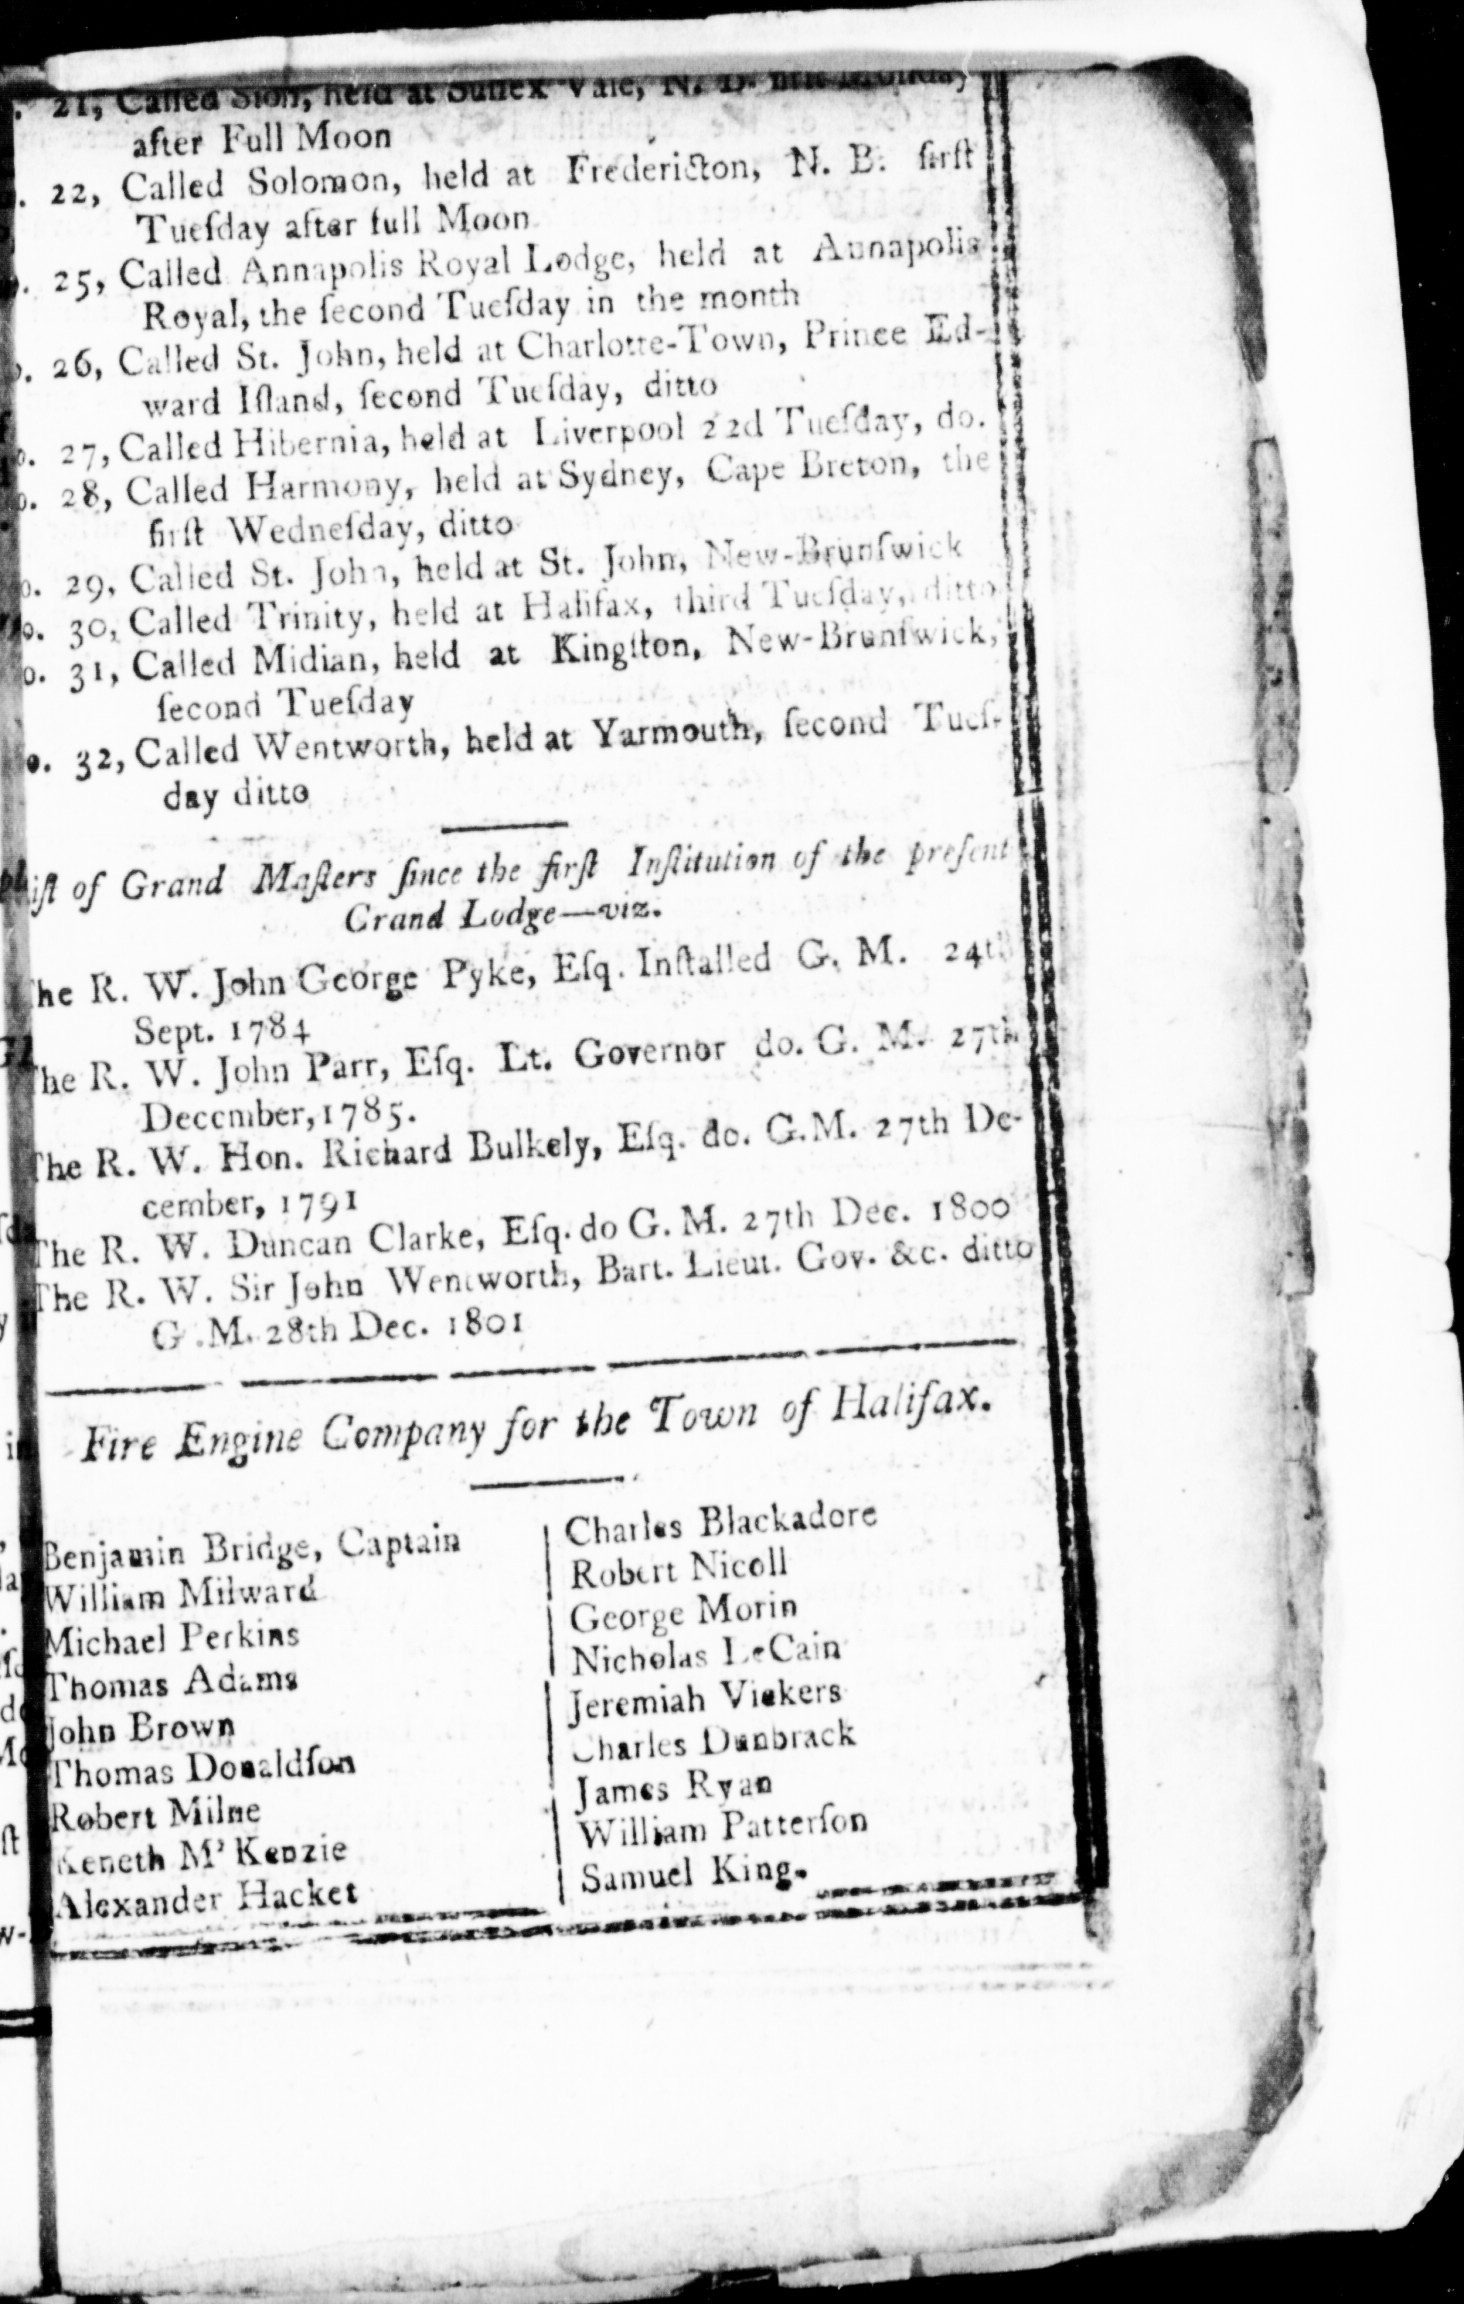 . 21, Called Sion, held at Suſſex Vale, N. B. firſt Monday
after Full Moon
. 22, Called Solomon, held at Fredericton, N. B. firſt
Tueſday after full Moon
o. 25, Called Annapolis Royal Lodge, held at Annapolis
Royal, the ſecond Tueſday in the month
o. 26, Called St. John, held at Charlotte-Town, Prince Ed-
ward Iſland, ſecond Tueſday, ditto
o. 27, Called Hibernia, held at Liverpool 22d Tueſday, do.
o. 28, Called Harmony, held at Sydney, Cape Breton, the
firſt Wedneſday, ditto
o. 29, Called St. John, held at St. John, New-Brunſwick
o. 30, Called Trinity, held at Halifax, third Tueſday, ditto
o. 31, Called Midian, held at Kingſton, New-Brunſwick,
ſecond Tueſday
o. 32, Called Wentworth, held at Yarmouth, ſecond Tueſ-
day ditto
iſt of Grand Maſters ſince the firſt Inſtitution of the preſent
Grand Lodge—viz.
The R. W. John George Pyke, Eſq. Inſtalled G. M. 24th
Sept. 1784
The R. W. John Parr, Eſq. Lt. Governor do. G. M. 27th
December, 1785.
The R. W. Hon. Richard Bulkely, Eſq. do. G.M. 27th De-
cember, 1791
The R. W. Duncan Clarke, Eſq. do G. M. 27th Dec. 1800
The R. W. Sir John Wentworth, Bart. Lieut. Gov. &c. ditto
G .M. 28th Dec. 1801
Fire Engine Company for the Town of Halifax.
Benjamin Bridge, Captain
William Milward
Michael Perkins
Thomas Adams
John Brown
Thomas Donaldſon
Robert Milne
Keneth M' Kenzie
Alexander Hacket
Charles Blackadore
Robert Nicoll
George Morin
Nicholas LeCain
Jeremiah Vickers
Charles Dunbrack
James Ryan
William Patterſon
Samuel King.